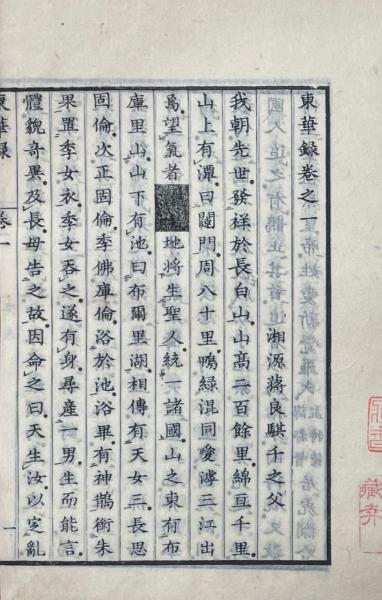 東華錄卷之一
湘源蔣良騏千之父
我朝先世發祥於長白山山高二百餘里綿亘千里
山上有潭曰闥門周八十里鴨綠混同愛滹三江出
焉望氣者 地將生聖人統一諸國山之東有布
庫里山山下有池曰布爾里湖相傳有天女三長恩
固倫次正固倫季佛庫倫浴於池浴畢有神鵲銜朱
果置季女衣季女吞之遂有身尋產一男生而能言
體貌奇異及長母告之故因命之曰天生汝以定亂
東華錄 卷一 一
藏